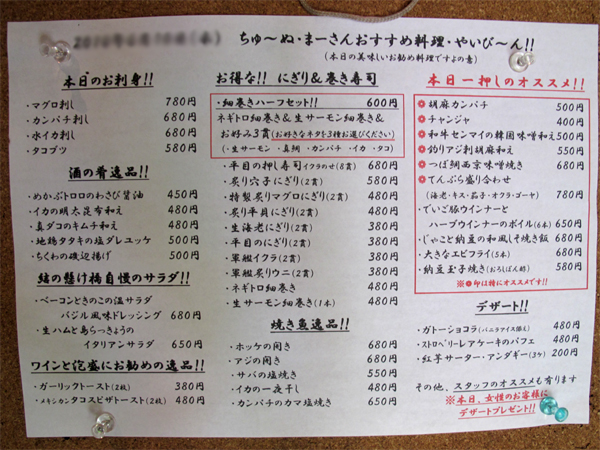 ちゅ〜ぬ・まーさんおすすめ料理・やいび〜ん!!
(本日の美味しいお勧め料理ですよの意)
本日のお刺身!!
・マグロ刺し 780円
・カンパチ刺し 680円
・水イカ刺し 680円
・タコブツ 580円
酒の肴逸品!!
・めかぶトロロのわさび醤油 450円
・イカの明太昆布和え 480円
・真ダコのキムチ和え 480円
・地鶏タタキの塩ダレユッケ 500円
・ちくわの磯辺揚げ 500円
結の懸け橋自慢のサラダ!!
・ベーコンときのこの温サラダ
バジル風味ドレッシング 680円
・生ハムと島らっきょうの
イタリアンサラダ 650円
ワインと泡盛にお勧めの逸品!!
・ガーリックトースト(2枚) 380円
・メキシカンタコスピザトースト(2枚) 480円
お得な!! にぎり&巻き寿司
・細巻きハーフセット!! 600円
ネギトロ細巻き&生サーモン細巻き&
お好み3貫(お好きなネタを3種お選びください)
(・生サーモン ・真鯛 ・カンパチ ・イカ ・タコ)
・平目の押し寿司イクラのせ(8貫) 680円
・炙り穴子にぎり(2貫) 480円
・特製炙りマグロにぎり(2貫) 480円
・炙り平貝にぎり(2貫) 480円
・生海老にぎり(2貫) 480円
・平目のにぎり(2貫) 480円
・軍艦イクラ(2貫) 480円
・軍艦炙りウニ(2貫) 480円
・ネギトロ細巻き 480円
・生サーモン細巻き(1本) 480円
焼き魚逸品!!
・ホッケの開き 680円
・アジの開き 680円
・サバの塩焼き 550円
・イカの一夜干し 480円
・カンパチのカマ塩焼き 650円
本日一押しのオススメ!!
胡麻カンパチ 500円
チャンジャ 400円
和牛センマイの韓国味噌和え 500円
釣りアジ利胡麻和え 550円
つぼ鯛西京味噌焼き 680円
てんぷら盛り合わせ
(海老・キス・茄子・オクラ・ゴーヤ) 780円
・でいご豚ウインナーと
ハーブウインナーのボイル(6本) 650円
・じゃこと納豆の和風しそ焼き飯 680円
・大きなエビフライ(5本) 680円
・納豆玉子焼き(おろしぽん酢) 580円
※印は特にオススメです!!
デザート!!
・ガトーショコラ(バニラアイス添え) 480円
・ストロベリーレアケーキのパフェ 480円
・紅芋サーター・アンダギー(3ケ) 200円
その他、スタッフのオススメも有ります
※本日、女性のお客様に
デザートプレゼント!!